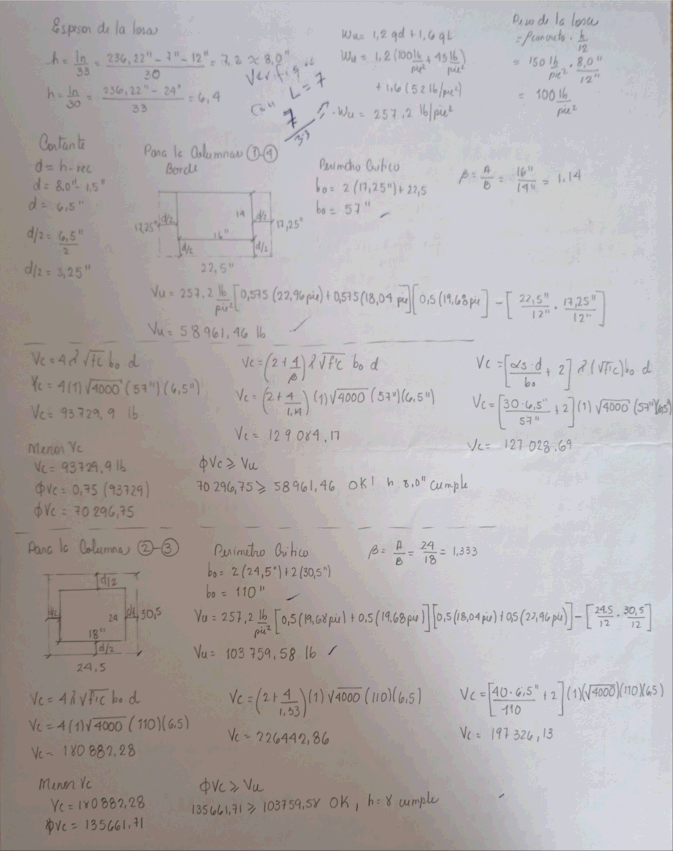 Espesor de la losa
h = ln/33 = (236,22" - 7" - 12")/30 = 7,2 ≈ 8,0"
h = ln/30 = (236,22" - 24")/33 = 6,4
L = 7
7/33
Wu = 1,2 qd + 1,6 qL
Wu = 1,2 (100 lb/pie² + 45 lb/pie²)
+ 1,6 (52 lb/pie²)
Wu = 257,2 lb/pie²
Peso de la losa
= ρconcreto · h/12
= 150 lb/pie² · 8,0"/12"
= 100 lb/pie²
Cortante
d = h - rec
d = 8,0" - 1,5"
d = 6,5"
d/2 = 6,5"/2
d/2 = 3,25"
Para la Columnas ①-④
Borde
17,25" d/2 14 d/2 17,25"
16"
d/2 d/2
22,5"
Perimetro Critico
bo = 2 (17,25") + 22,5
bo = 57"
β = A/B = 16"/14" = 1,14
Vu = 257,2 lb/pie² [0,575 (22,96 pie) + 0,575 (18,04 pie)] [0,5 (19,68 pie)] - [22,5"/12" · 17,25"/12"]
Vu = 58961,46 lb
Vc = 4 λ √f'c bo d
Vc = 4 (1) √4000 (57") (6,5")
Vc = 93729,9 lb
Vc = (2 + 4/β) λ √f'c bo d
Vc = (2 + 4/1,14) (1) √4000 (57") (6,5")
Vc = 129084,17
Vc = [αs·d/bo + 2] λ (√f'c) bo d
Vc = [30·6,5"/57" + 2] (1) √4000 (57") (6,5")
Vc = 127028,69
Menor Vc
Vc = 93729,9 lb
ϕVc = 0,75 (93729)
ϕVc = 70296,75
ϕVc ≥ Vu
70296,75 ≥ 58961,46 OK! h 8.0" cumple
Para la Columna ②-③
d/2
24 d/2 30,5
18"
d/2
24,5
Perimetro Critico
bo = 2 (24,5") + 2 (30,5")
bo = 110"
β = A/B = 24/18 = 1,333
Vu = 257,2 lb/pie² [0,5 (19,68 pie) + 0,5 (19,68 pie)] [0,5 (18,04 pie) + 0,5 (22,96 pie)] - [24,5/12 · 30,5/12]
Vu = 103759,58 lb
Vc = 4 λ √f'c bo d
Vc = 4 (1) √4000 (110) (6,5)
Vc = 180882,28
Vc = (2 + 4/1,33) (1) √4000 (110) (6,5)
Vc = 226442,86
Vc = [40·6,5"/110 + 2] (1) (√4000) (110) (6,5)
Vc = 197326,13
Menor Vc
Vc = 180882,28
ϕVc = 135661,71
ϕVc ≥ Vu
135661,71 ≥ 103759,58 OK, h = 8 cumple